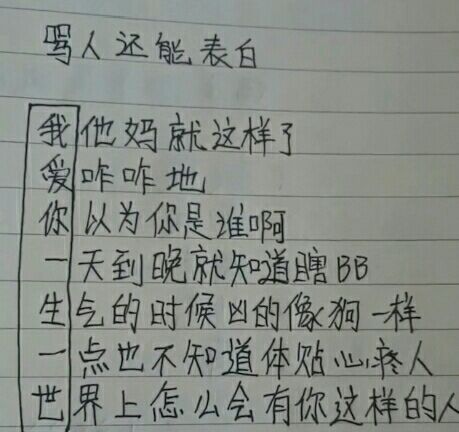 骂人还能表白
我他妈就这样了
爱咋咋地
你以为你是谁啊
一天到晚就知道瞎BB
生气的时候凶的像狗一样
一点也不知道体贴心疼人
世界上怎么会有你这样的人